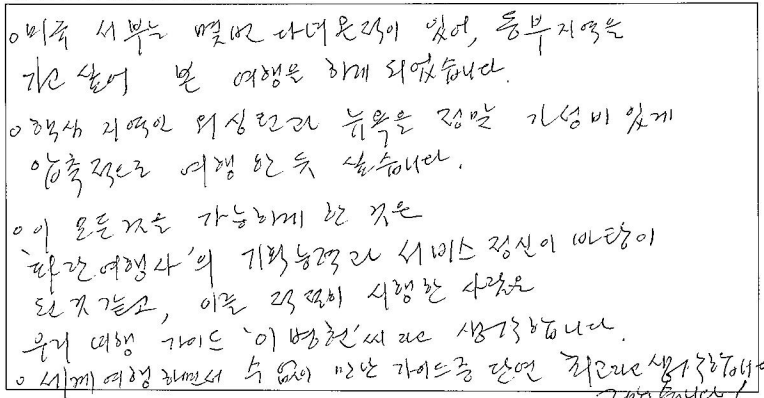 ◦미국 서부는 몇번 다녀온적이 있어, 동부지역을
가고 싶어 본 여행을 하게 되었습니다.
◦핵심 지역인 워싱턴과 뉴욕을 정말 가성비 있게
압축적으로 여행 한 듯 싶습니다.
◦이 모든것을 가능하게 한 것은
'파란여행사'의 기획능력과 서비스 정신이 바탕이
된것 같고, 이를 적절히 시행한 사람은
우리 여행 가이드 '이병헌'씨 라고 생각합니다.
◦세계여행하면서 수없이 만난 가이드중 단연 최고라고 생각합니다